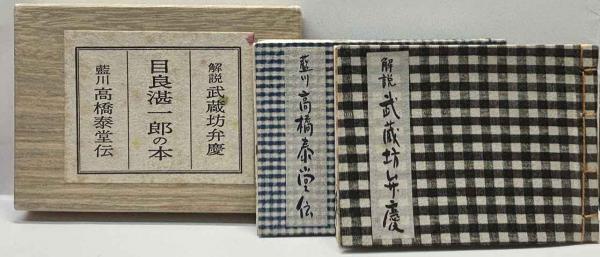 解説 武蔵坊弁慶
目良湛一郎の本
藍川 高橋泰堂伝
藍川 高橋泰堂伝
解説 武蔵坊弁慶